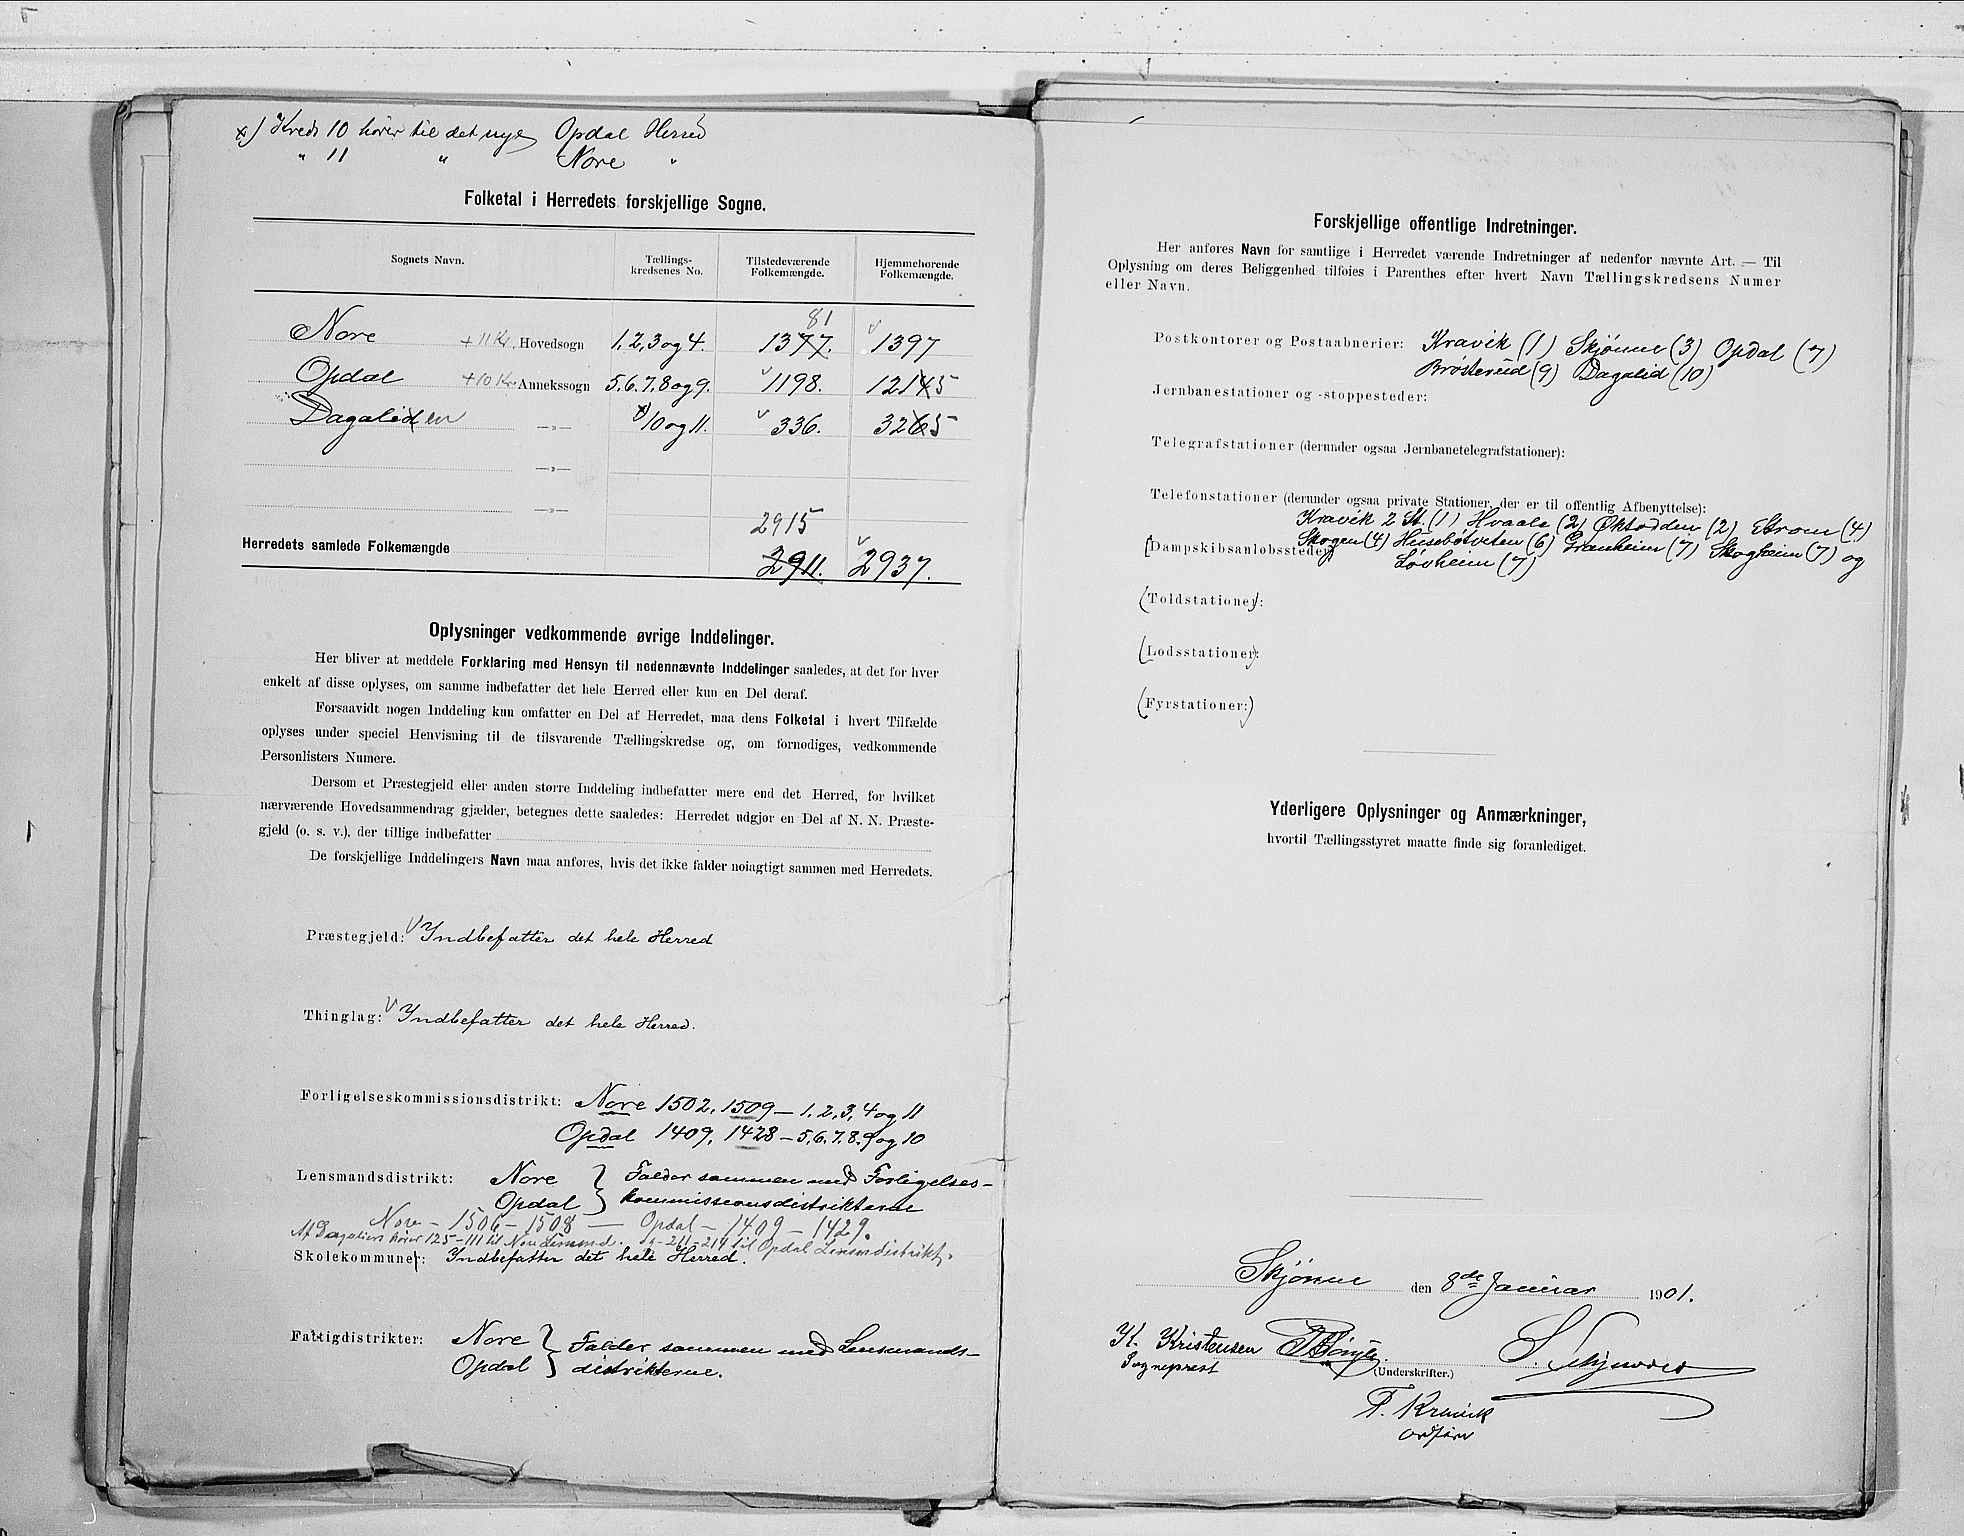 x) Kreds 10 hører til det nye Opdal Herred
" 11 " Nore "
Folketal i Herredets forskjellige Sogne.
Sognets Navn. Tællings-kredsenes No. Tilstedeværende Folkemængde. Hjemmehørende Folkemængde.
81
Nore +11 Kr. Hovedsogn 1, 2, 3 og 4. 1377. 1397
Opdal +10 Kr. Annekssogn 5, 6, 7, 8 og 9. 1198. 12145
Dagaliden —»— x) 10 og 11. 336. 3265
—»—
—»—
2915
Herredets samlede Folkemængde 2911. 2937.
Oplysninger vedkommende øvrige Inddelinger.
Her bliver at meddele Forklaring med Hensyn til nedennævnte Inddelinger saaledes, at det for hver
enkelt af disse oplyses, om samme indbefatter det hele Herred eller kun en Del deraf.
Forsaavidt nogen Inddeling kun omfatter en Del af Herredet, maa dens Folketal i hvert Tilfælde
oplyses under speciel Henvisning til de tilsvarende Tællingskredse og, om fornødiges, vedkommende
Personlisters Numere.
Dersom et Præstegjeld eller anden større Inddeling indbefatter mere end det Herred, for hvilket
nærværende Hovedsammendrag gjælder, betegnes dette saaledes: Herredet udgjør en Del af N. N. Præste-
gjeld (o. s. v.), der tillige indbefatter
De forskjellige Inddelingers Navn maa anføres, hvis det ikke falder nøiagtigt sammen med Herredets.
Præstegjeld: Indbefatter det hele Herred
Thinglag: Indbefatter det hele Herred.
Forligelseskommissionsdistrikt: Nore 1502, 1509 — 1, 2, 3, 4 og 11
Opdal 1409, 1428 — 5, 6, 7, 8, 9 og 10
Lensmandsdistrikt: Nore } Falder sammen med Forligelses-
Opdal } kommissionsdistrikterne
Nore — 1506 — 1508 — Opdal — 1409 — 1429.
Af Dagalien hører 125 - 111 til Nore Lensmd. og 211 - 214 til Opdal Lensmdistrikt.
Skolekommuner: Indbefatter det hele Herred.
Fattigdistrikter: Nore } Falder sammen med Lensmands-
Opdal } distrikterne.
Forskjellige offentlige Indretninger.
Her anføres Navn for samtlige i Herredet værende Indretninger af nedenfor nævnte Art. — Til
Oplysning om deres Beliggenhed tilføies i Parenthes efter hvert Navn Tællingskredsens Numer
eller Navn.
Postkontorer og Postaabnerier: Kravik (1) Skjønne (3) Opdal (7)
Brøsterud (9) Dagalid (10)
Jernbanestationer og -stoppesteder:
Telegrafstationer (derunder ogsaa Jernbanetelegrafstationer):
Telefonstationer (derunder ogsaa private Stationer, der er til offentlig Afbenyttelse):
Kravik 2 St. (1) Hvaale (2) Øktedden (2) Strom (4)
Skogen (4) Husebøtveten (6) Grønheim (7) Skogheim (7) og
(Dampskibsanløbssteder) Løvheim (7)
(Toldstationer):
(Lodsstationer):
(Fyrstationer:)
Yderligere Oplysninger og Anmærkninger,
hvortil Tællingsstyret maatte finde sig foranlediget.
Skjønne den 8de Januar 1901.
K. Kristensen
Sogneprest
(Underskrifter.)
T. Kravik
ordfører